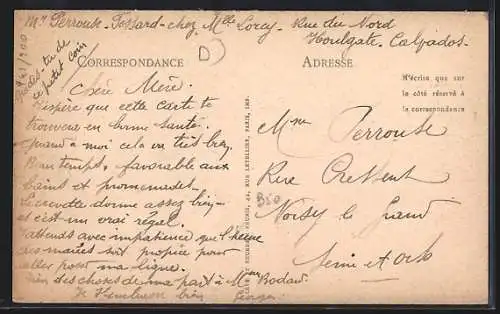 Mr Perrouse. Fossard - chez Mlle Lorey. Rue du Nord
Houlgate. Calvados.
CORRESPONDANCE
ADRESSE
N'écrire que sur
le côté réservé à
la correspondance
dis-tu de
ce petit coin
Chère Mère.
J'espère que cette carte te
trouvera en bonne santé.
quand à moi cela va très bien
Beau temps. favorable aux
bains et promenades.
la crevette donne assez bien
et c'est un vrai régal.
J'attends avec impatience que l'heure
des marées soit propice pour
aller poser ma ligne.
bien des choses de ma part à Mme Bodard.
Je t'embrasse bien
Mme Perrouse
Rue Cressent
Noisy le Grand
Seine et Oise
B50